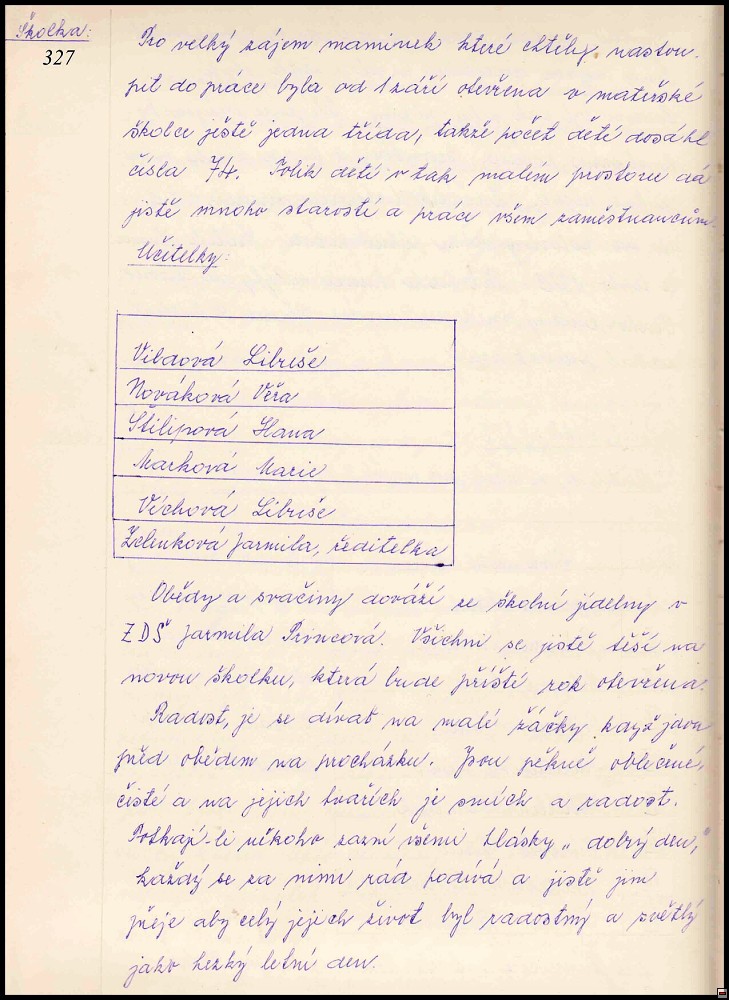 Školka:
327
Pro velký zájem maminek které chtěly nastou-
pit do práce byla od 1 září otevřena v mateřské
školce ještě jedna třída, takže počet dětí dosáhl
čísla 74. Tolik dětí v tak malém prostoru dá
jistě mnoho starostí a práce všem zaměstnancům.
Učitelky:
Libuše
Nováková Věra
Štilipová Hana
Marková Marie
Víchová Libuše
Zelenková Jarmila, ředitelka
Obědy a svačiny dováží ze školní jídelny v
ZDŠ Jarmila Princová. Všichni se jistě těší na
novou školku, která bude příští rok otevřena.
Radost, je se dívat na malé žáčky když jdou
před obědem na procházku. Jsou pěkně oblečené,
čisté a na jejich tvářích je smích a radost.
Potkají-li někoho zazní všemi hlásky „dobrý den,"
každý se za nimi rád podívá a jistě jim
přeje aby celý jejich život byl radostný a světlý
jako hezký letní den.